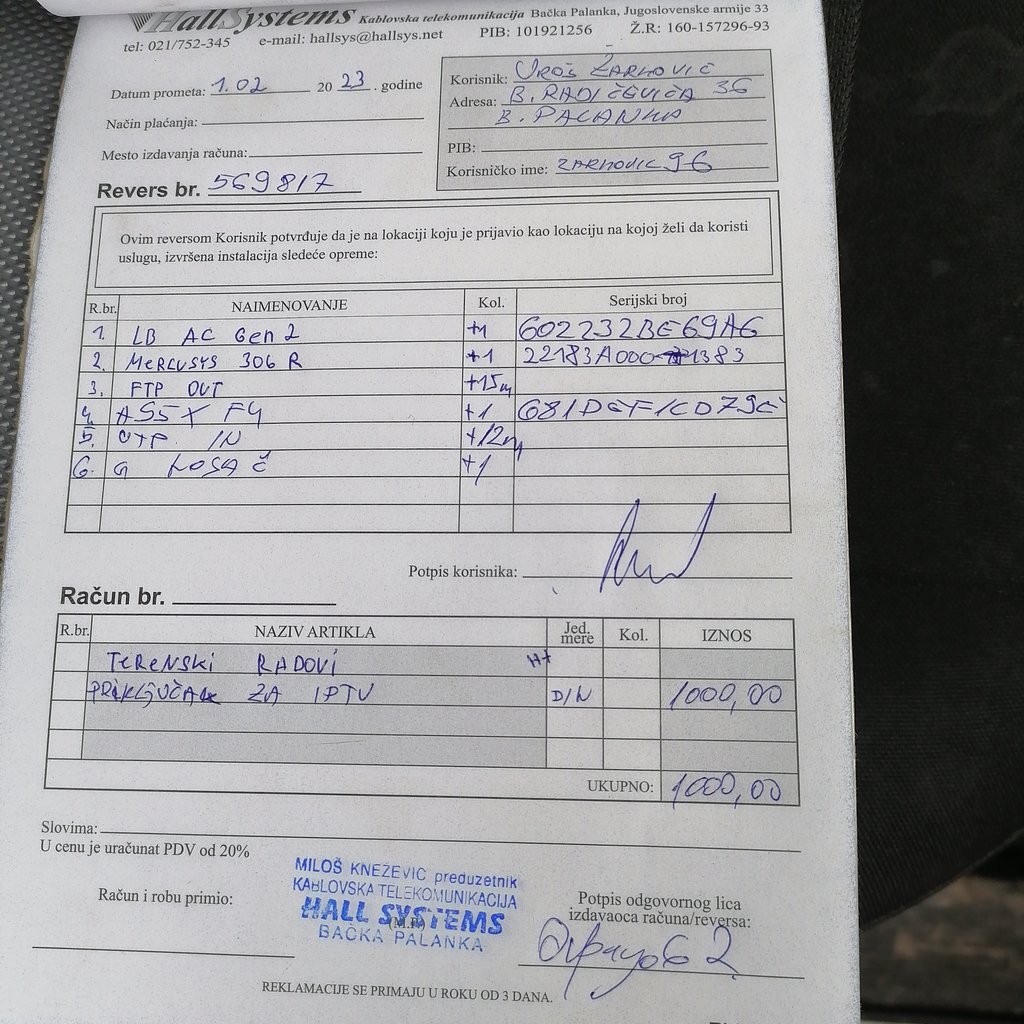 HallSystems Kablovska telekomunikacija Bačka Palanka, Jugoslovenske armije 33
tel: 021/752-345 e-mail: hallsys@hallsys.net PIB: 101921256 Ž.R: 160-157296-93
Datum prometa: 1.02 2023. godine
Način plaćanja:
Mesto izdavanja računa:
Revers br. 569817
Korisnik: UROŠ ŽARKOVIĆ
Adresa: B. RADIČEVIĆA 36
B. PALANKA
PIB:
Korisničko ime: ZARKOVIC96
Ovim reversom Korisnik potvrđuje da je na lokaciji koju je prijavio kao lokaciju na kojoj želi da koristi
uslugu, izvršena instalacija sledeće opreme:
R.br. NAIMENOVANJE Kol. Serijski broj
1. LB AC Gen 2 +1 602232BE69A6
2. MERCUSYS 306 R +1
3. FTP OUT +15m
4. A55X F4 +1
5. UTP IN +12m
6. G NOSAČ +1
Potpis korisnika:
Račun br.
R.br. NAZIV ARTIKLA Jed. mere Kol. IZNOS
TERENSKI RADOVI
PRIKLJUČAK ZA IPTV DIN 1000,00
UKUPNO: 1000,00
Slovima:
U cenu je uračunat PDV od 20%
Račun i robu primio:
MILOŠ KNEŽEVIĆ preduzetnik
KABLOVSKA TELEKOMUNIKACIJA
HALL SYSTEMS
(M.P.)
BAČKA PALANKA
Potpis odgovornog lica
izdavaoca računa/reversa:
REKLAMACIJE SE PRIMAJU U ROKU OD 3 DANA.